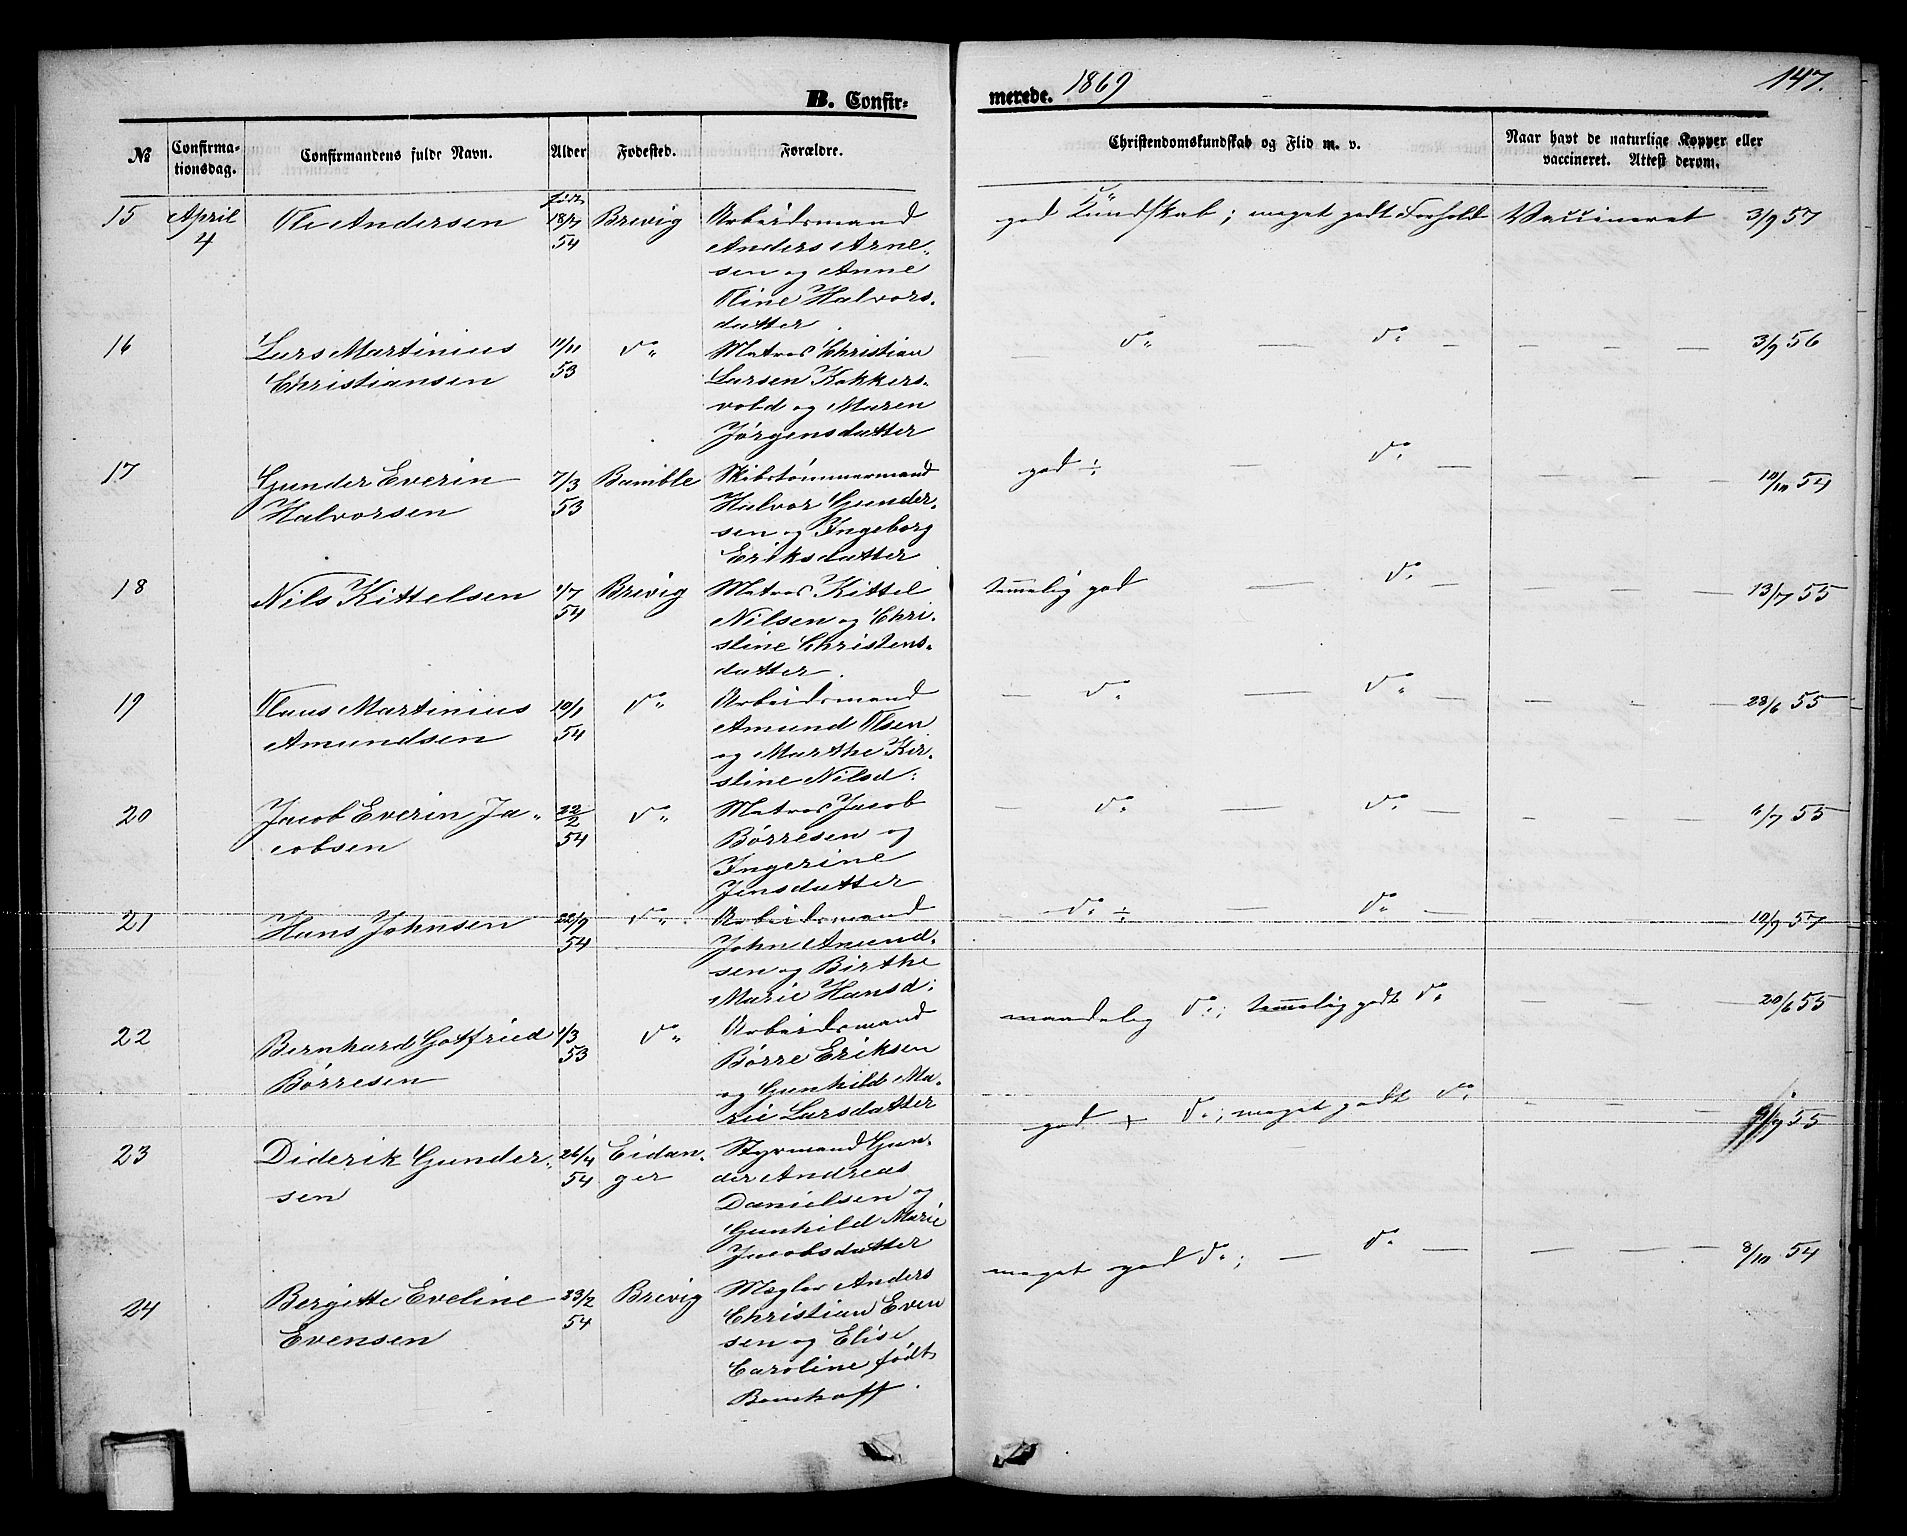 B. Confir-
merede. 1869
147.
№
Confirma-
tionsdag.
Confirmandens fulde Navn.
Alder
Fødested.
Forældre.
Christendomskundskab og Flid m. v.
Naar havt de naturlige Kopper eller
vaccineret. Attest derom.
15 April Ole Andersen 18/7 Brevig Arbeidsmand god Kundskab; meget godt Forhold Vaccineret 3/9 57
4 54 Anders Arne-
sen og Anne
Oline Halvors-
datter.
16 Lars Martinius 11/11 do Matros Christian — do — do — — — — 3/9 56
Christiansen 53 Larsen Kokkers-
vold og Maren
Jørgensdatter
17 Gunder Everin 7/3 Bamble Skibstømmermand god ÷ — do — — — — 10/10 54
Halvorsen 53 Halvor Gunder-
sen og Ingeborg
Eriksdatter
18 Nils Kittelsen 4/7 Brevig Matros Kittel temmelig god — do — — — — 13/7 55
54 Nilsen og Chri-
stine Christens-
datter.
19 Olaus Martinius 10/1 do Arbeidsmand — do — do — — — — 28/6 55
Amundsen 54 Amund Olsen
og Marthe Kir-
stine Nilsd:
20 Jacob Everin Ja- 22/2 do Matros Jacob — do — do — — — — 6/7 55
cobsen 54 Børresen og
Ingerine
Jensdatter
21 Hans Johnsen 22/9 do Arbeidsmand do ÷ — do — — — — 10/9 57
54 John Amund-
sen og Birthe
Marie Hansd:
22 Bernhard Gotfried 1/3 do Arbeidsmand maadelig do; temmelig godt do — — — 20/6 55
Børresen 53 Børre Eriksen
og Gunhild Ma-
rie Larsdatter
23 Diderik Gunder- 26/4 Eidan- Styrmand Gun- god + do; meget godt do — — — 55
sen 54 ger der Andreas
Danielsen og
Gunhild Marie
Jacobsdatter
24 Bergitte Eveline 23/2 Brevig Mægler Anders meget god do; — do — — — — 8/10 54
Evensen 54 Christian Even
sen og Elise
Caroline født